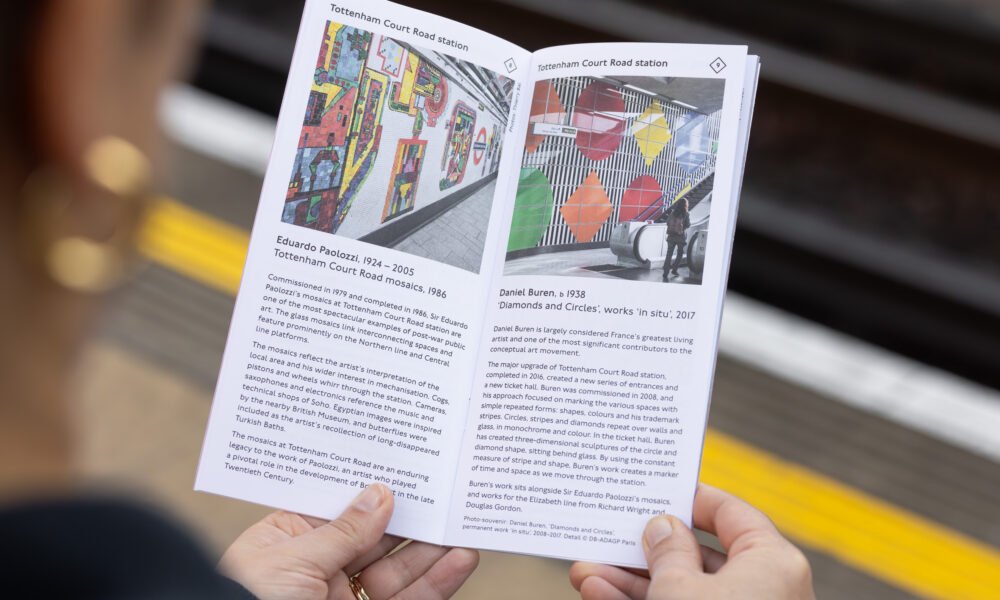 Tottenham Court Road station
Eduardo Paolozzi, 1924 – 2005
Tottenham Court Road mosaics, 1986
Commissioned in 1979 and completed in 1986, Sir Eduardo
Paolozzi's mosaics at Tottenham Court Road station are
one of the most spectacular examples of post-war public
art. The glass mosaics link interconnecting spaces and
feature prominently on the Northern line and Central
line platforms.
The mosaics reflect the artist's interpretation of the
local area and his wider interest in mechanisation. Cogs,
pistons and wheels whirr through the station. Cameras,
saxophones and electronics reference the music and
technical shops of Soho. Egyptian images were inspired
by the nearby British Museum, and butterflies were
included as the artist's recollection of long-disappeared
Turkish Baths.
The mosaics at Tottenham Court Road are an enduring
legacy to the work of Paolozzi, an artist who played
a pivotal role in the development of art in the late
Twentieth Century.
Tottenham Court Road station
9
Daniel Buren, b 1938
'Diamonds and Circles', works 'in situ', 2017
Daniel Buren is largely considered France's greatest living
artist and one of the most significant contributors to the
conceptual art movement.
The major upgrade of Tottenham Court Road station,
completed in 2016, created a new series of entrances and
a new ticket hall. Buren was commissioned in 2008, and
his approach focused on marking the various spaces with
simple repeated forms: shapes, colours and his trademark
stripes. Circles, stripes and diamonds repeat over walls and
glass, in monochrome and colour. In the ticket hall, Buren
has created three-dimensional sculptures of the circle and
diamond shape, sitting behind glass. By using the constant
measure of stripe and shape, Buren's work creates a marker
of time and space as we move through the station.
Buren's work sits alongside Sir Eduardo Paolozzi's mosaics,
and works for the Elizabeth line from Richard Wright and
Douglas Gordon.
Photo-souvenir: Daniel Buren, 'Diamonds and Circles'
permanent work 'in situ', 2008-2017. Detail © DB-ADAGP Paris